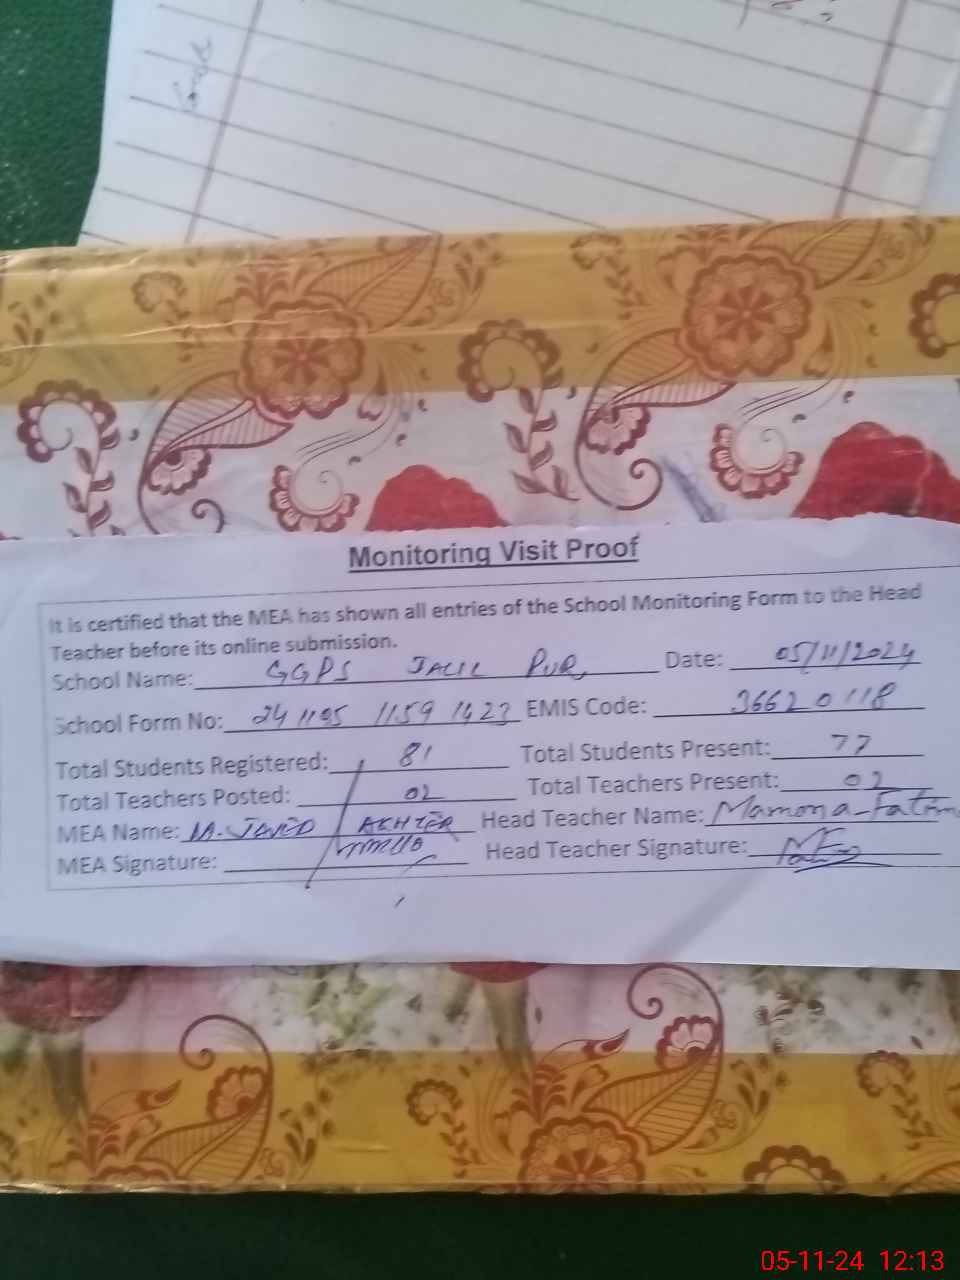 Monitoring Visit Proof
It is certified that the MEA has shown all entries of the School Monitoring Form to the Head
Teacher before its online submission.
School Name: GGPS JALIL PUR Date: 05/11/2024
School Form No: 241105 1159 1423 EMIS Code: 36620118
Total Students Registered: 81 Total Students Present: 77
Total Teachers Posted: 02 Total Teachers Present: 02
MEA Name: M. JAVED AKHTER Head Teacher Name: Mamona Fatim
MEA Signature: Head Teacher Signature:
05-11-24 12:13